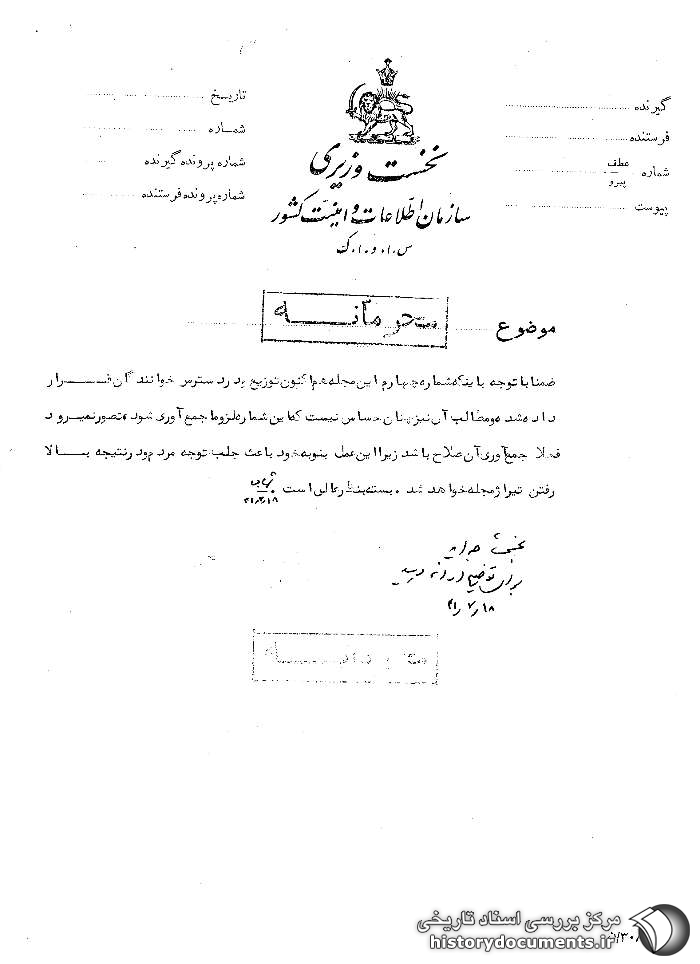 گیرنده
فرستنده
شماره عطف پیرو
پیوست
تاریخ
شماره
شماره پرونده گیرنده
شماره پرونده فرستنده
نخست وزیری
سازمان اطلاعات و امنیت کشور
س.ا.و.ا.ک
موضوع
محرمانه
ضمنا با توجه باینکه شماره چهارم این مجله هم اکنون توزیع و در دسترس خوانندگان قرار
داده شده و مطالب آن نیز چنان حساس نیست که این شماره لزوما جمع آوری شود، تصور نمیرود
فعلا جمع آوری آن صلاح باشد زیرا این عمل بنوبه خود باعث جلب توجه مردم و در نتیجه بالا
رفتن تیراژ مجله خواهد شد. بسته بنظر عالی است
۴۱/۷/۱۸
مرکز بررسی اسناد تاریخی
historydocuments.ir